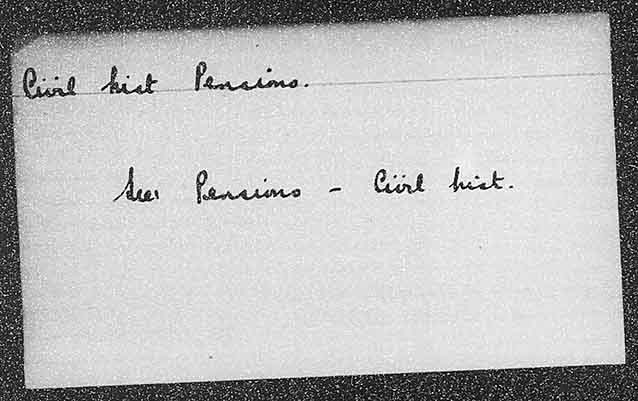 Civil List Pensions.
See Pensions - Civil List.